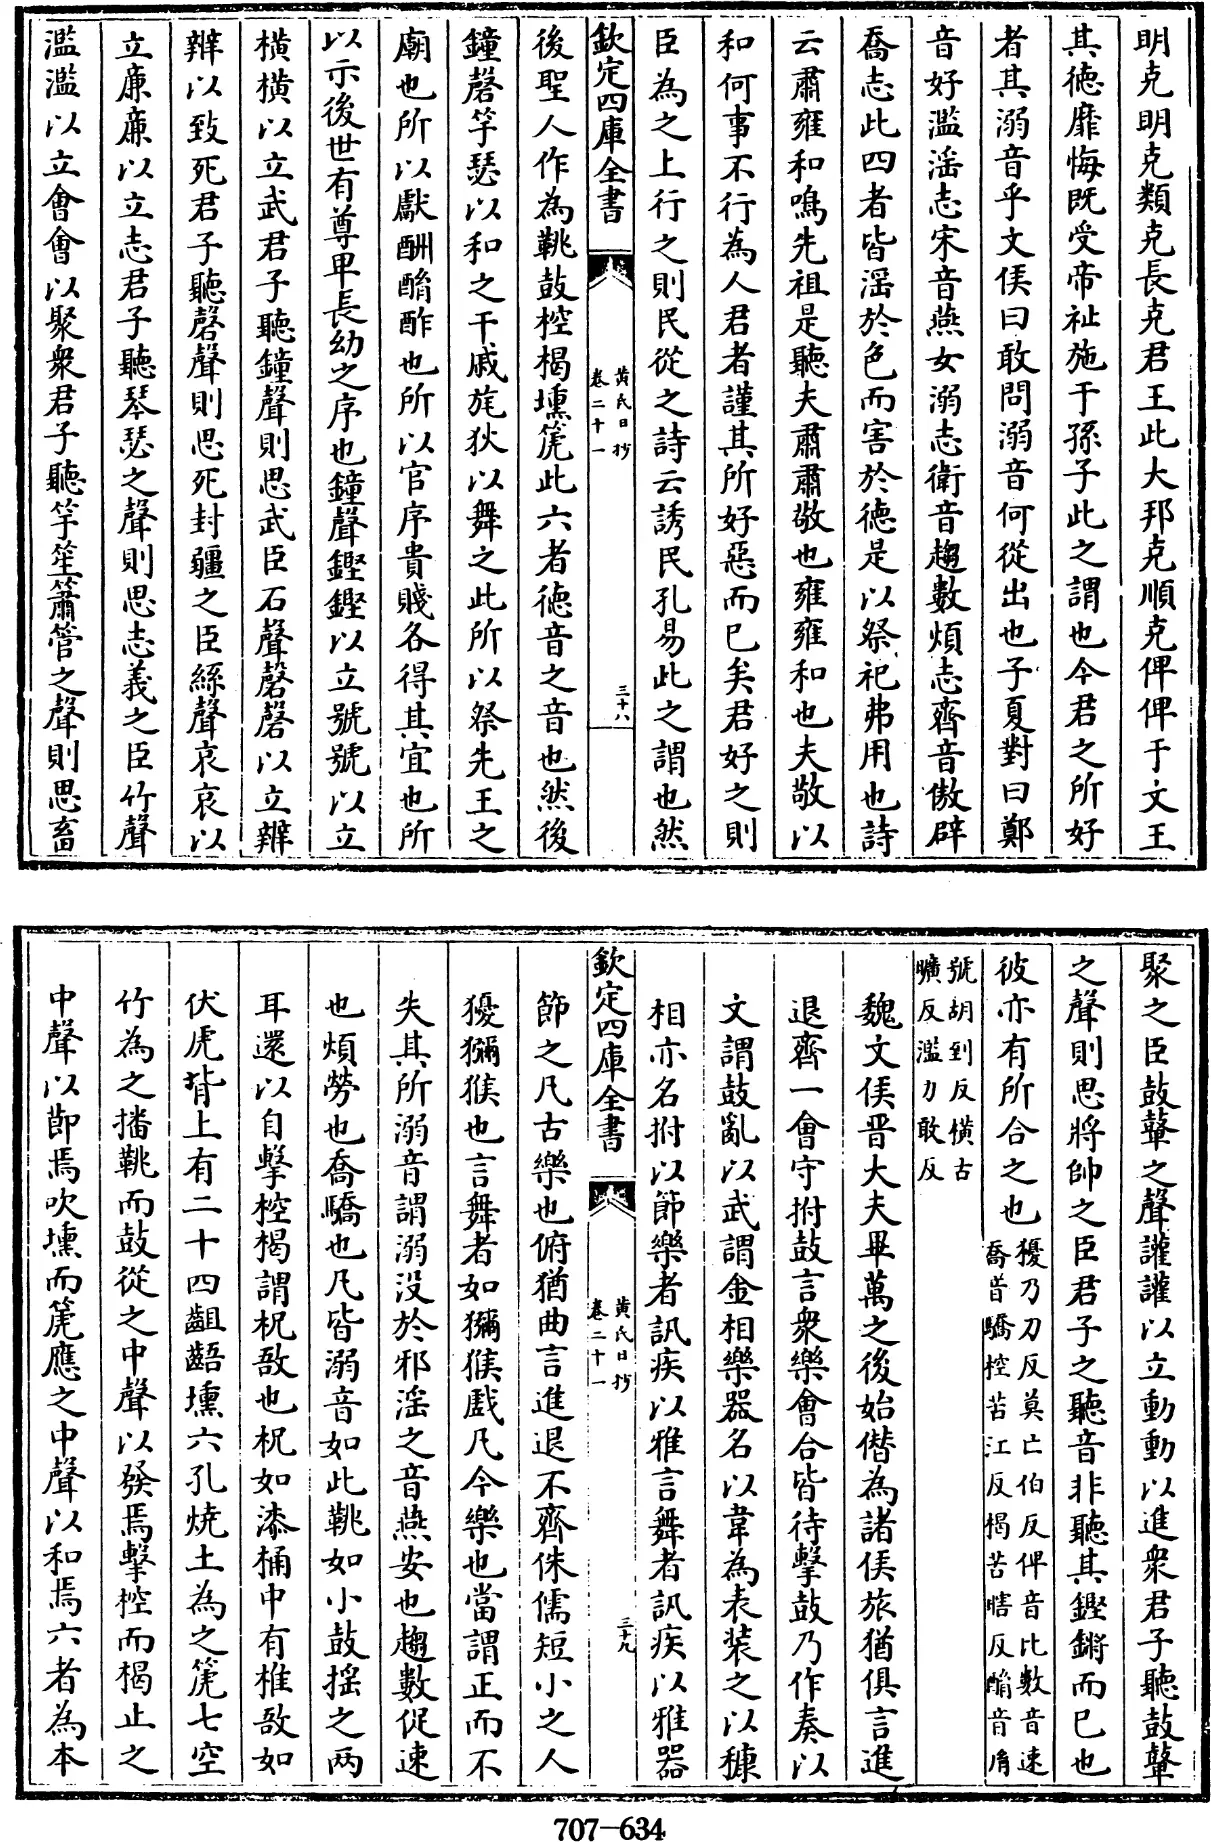 明克明克類克長克君王此大邦克順克俾俾于文王
其徳靡悔既受帝祉施于孫子此之謂也今君之所好
者其溺音乎文侯曰敢問溺音何從出也子夏對曰鄭
音好濫滛志宋音燕女溺志衛音趨數煩志齊音傲辟
喬志此四者皆滛於色而害於徳是以祭祀弗用也詩
云肅雍和鳴先祖是聽夫肅肅敬也雍雍和也夫敬以
和何事不行為人君者謹其所好惡而已矣君好之則
臣為之上行之則民從之詩云誘民孔易此之謂也然
欽定四庫全書
黃氏日抄
卷二十一
三十八
後聖人作為鞉鼓椌楬壎箎此六者徳音之音也然後
鐘磬竽瑟以和之干戚旄狄以舞之此所以祭先王之
廟也所以獻酬酳酢也所以官序貴賤各得其宜也所
以示後世有尊卑長幼之序也鐘聲鏗鏗以立號號以立
橫橫以立武君子聽鐘聲則思武臣石聲磬磬以立辨
辨以致死君子聽磬聲則思死封疆之臣絲聲哀哀以
立廉廉以立志君子聽琴瑟之聲則思志義之臣竹聲
濫濫以立會會以聚衆君子聽竽笙簫管之聲則思畜
聚之臣鼓鼙之聲讙讙以立動動以進衆君子聽鼓鼙
之聲則思將帥之臣君子之聽音非聽其鏗鏘而已也
彼亦有所合之也
獶乃刀反莫亡伯反俾音比數音速
喬音驕椌苦江反楬苦瞎反酳音胤
號胡到反橫古
曠反濫力敢反
魏文侯晋大夫畢萬之後始僭為諸侯旅猶俱言進
退齊一會守拊鼓言衆樂會合皆待擊鼓乃作奏以
文謂鼓亂以武謂金相樂器名以韋為表装之以穅
相亦名拊以節樂者訊疾以雅言舞者訊疾以雅器
欽定四庫全書
黃氏日抄
卷二十一
三十九
節之凡古樂也俯猶曲言進退不齊侏儒短小之人
獶獼猴也言舞者如獼猴戲凡今樂也當謂正而不
失其所溺音謂溺没於邪滛之音燕安也趨數促速
也煩勞也喬驕也凡皆溺音如此鞉如小鼓揺之两
耳還以自擊椌楬謂柷敔也柷如漆桶中有椎敔如
伏虎背上有二十四齟齬壎六孔燒土為之箎七空
竹為之播鞉而鼓從之中聲以發焉擊椌而楬止之
中聲以節焉吹壎而箎應之中聲以和焉六者為本
707-634